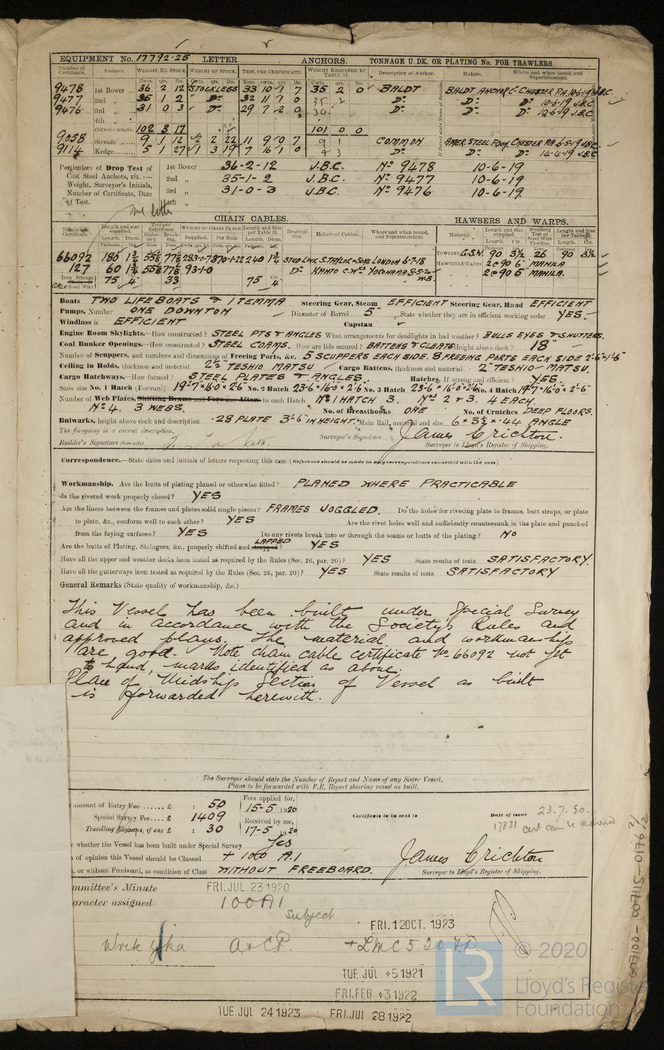 EQUIPMENT No. 17792.25 LETTER ANCHORS. TONNAGE U. DK. OR PLATING No. FOR TRAWLERS
Number of Certificate. Anchors. WEIGHT EX. STOCK WEIGHT OF STOCK. TEST, PER CERTIFICATE. WEIGHT REQUIRED BY TABLE 31. Description of Anchor. Makers. Where and when tested and Superintendent.
9478 1st Bower 36 2 12 STOCKLESS 33 10 7 7 35 2 0 BALDT BALDT ANCHOR Co CHESTER P.A. 10-6-19 J.B.C.
9477 2nd " 35 1 2 Do 32 11 7 0 Do Do Do 10-6-19 J.B.C
9476 3rd " 31 0 3 Do 29 7 2 0 Do Do Do 10-6-19 J.B.C
4th "
Collective weight 102 3 17 101 0 0
9058 Stream 9 1 12 2 2 22 11 9 0 7 9 1 COMMON AMER. STEEL FOUN. CHESTER P.A. 6-5-19 J.B.C.
9114 Kedge 5 1 27 1 3 19 7 16 1 0 Do Do Do J.B.C
Particulars of Drop Test of Cast Steel Anchors, viz.:— Weight, Surveyor's Initials, Number of Certificate, Date of Test.
1st Bower 36-2-12 J.B.C. No 9478 10-6-19
2nd " 35-1-2 J.B.C. No 9477 10-6-19
3rd " 31-0-3 J.B.C. No 9476 10-6-19
4th "
See letter
CHAIN CABLES. HAWSERS AND WARPS.
66092 180 STUD LINK LONDON 6-7-18 TOWLING G.S.W. 90 3½ 26 90 3½
127 60 Do YOKOHAMA HAWSERS & WARPS 2@ 90 6 MANILA
75 33 75 4 2@ 90 5 MANILA.
Boats TWO LIFEBOATS & 1 TEMMA Steering Gear, Steam EFFICIENT Steering Gear, Hand EFFICIENT
Pumps, Number ONE DOWNTON Diameter of Barrel 5" State whether they are in efficient working order YES.
Windlass is EFFICIENT Capstan
Engine Room Skylights.—How constructed? STEEL PTS & ANGLES What arrangements for deadlights in bad weather? BULLS EYES & SHUTTERS.
Coal Bunker Openings.—How constructed? STEEL COAMS. How are lids secured? BATTENS & CLEATS Height above deck? 18"
Number of Scuppers, and numbers and dimensions of Freeing Ports, &c. 5 SCUPPERS EACH SIDE. 8 FREEING PORTS EACH SIDE 2-6×1-6
Ceiling in Holds, thickness and material 2½" TESHIO MATSU Cargo Battens, thickness and material 2" TESHIO-MATSU.
Cargo Hatchways.—How formed? STEEL PLATES & ANGLES. Hatches, If strong and efficient? YES.
State size No. 1 Hatch (Forward) 19-7×16-0×2-6 No. 2 Hatch 23-6×16-0×2-6 No. 3 Hatch 23-6×16-0×2-6 No. 4 Hatch 19-7×16-0×2-6
Number of Web Plates, Shifting Beams and Fore and Afters to each Hatch No 1 HATCH 3. No 2 & 3. 4 EACH.
No 4. 3 WEBS. No. of Breasthooks ONE No. of Crutches DEEP FLOORS.
Bulwarks, height above deck and description .28 PLATE 3'-6" IN HEIGHT. Main Rail, material and size 6×3½×.44 ANGLE
The foregoing is a correct description.
Builder's Signature Surveyor's Signature James Crichton.
Surveyor to Lloyd's Register of Shipping.
Correspondence.—State dates and initials of letters respecting this case (Reference should be made to any correspondence connected with the case)
Workmanship. Are the butts of plating planed or otherwise fitted? PLANED WHERE PRACTICABLE
Is the riveted work properly closed? YES
Are the liners between the frames and plates solid single pieces? FRAMES JOGGLED. Do the holes for riveting plate to frames, butt straps, or plate
to plate, &c., conform well to each other? YES Are the rivet holes well and sufficiently countersunk in the plate and punched
from the faying surfaces? YES Do any rivets break into or through the seams or butts of the plating? NO
Are the butts of Plating, Stringers, &c., properly shifted and strapped? LAPPED YES
Have all the upper and weather decks been tested as required by the Rules (Sec. 26, par. 20)? YES State results of tests SATISFACTORY.
Have all the gutterways been tested as required by the Rules (Sec. 26, par. 20)? YES State results of tests SATISFACTORY
General Remarks (State quality of workmanship, &c.)
This Vessel has been built under Special Survey
and in accordance with the Society's Rules and
approved plans. The material and workmanship
are good. Note chain cable certificate No 66092 not yet
to hand, marks identified as above.
Plan of Midship Section of Vessel as built
is forwarded herewith.
The Surveyor should state the Number of Report and Name of any Sister Vessel.
Plans to be forwarded with F.E. Report showing vessel as built.
amount of Entry Fee £ : 50 Fees applied for, 15-5-1920
Special Survey Fee £ 1409 Received by me,
Travelling Expenses, if any £ : 30 17-5-1920
Certificate to be sent to Date of issue 23.7.20.
17831
whether the Vessel has been built under Special Survey Yes
of opinion this Vessel should be Classed + 100 A.1
, or without Freeboard, as condition of Class WITHOUT FREEBOARD. James Crichton
Surveyor to Lloyd's Register of Shipping.
mmittee's Minute FRI. JUL 23 1920
aracter assigned 100A1
Subject
FRI. 12 OCT. 1923
A & CP. + LMC 5.20 FD
TUE. JUL. 5 1921
FRI. FEB. 3 1922
TUE JUL 24 1923 FRI. JUL 28 1922
LR © 2020
Lloyd's Register
Foundation